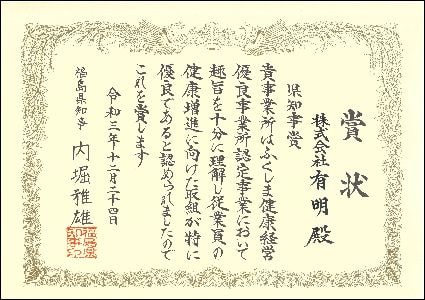 賞状
株式会社有明殿
県知事賞
貴事業所はふくしま健康経営
優良事業所認定事業において
趣旨を十分に理解し従業員の
健康増進に向けた取組が特に
優良であると認められましたので
これを賞します
令和三年十二月二十四日
福島県知事 内堀雅雄
福島県知事之印